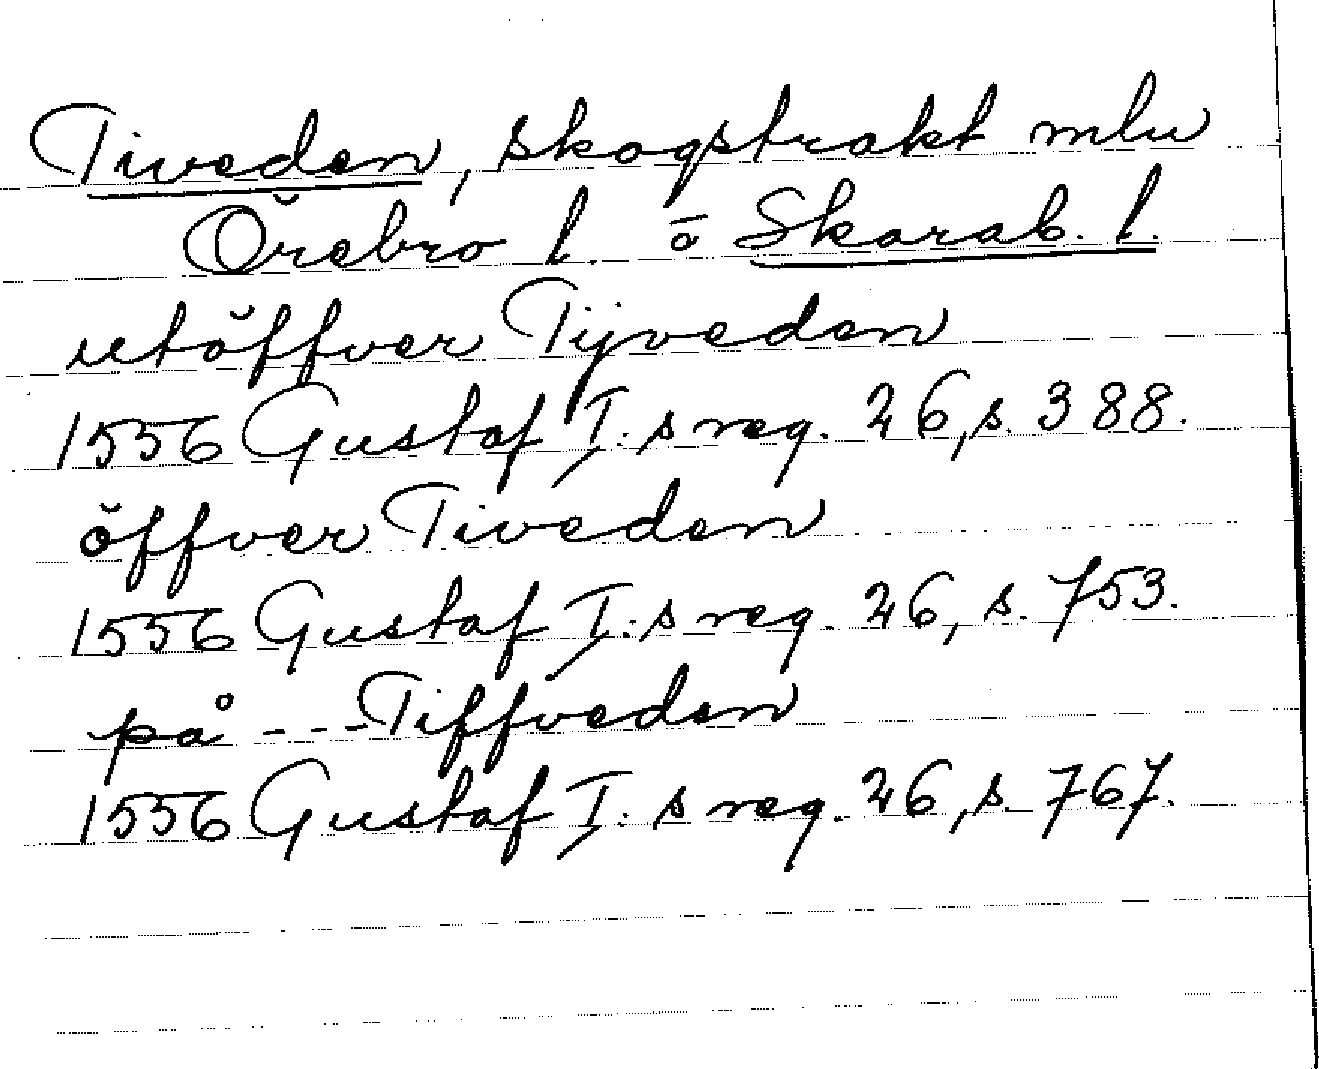 Tiveden, skogstrakt mlu
Örebro l. o Skarab. l.
utöffver Tijveden
1556 Gustaf I:s reg. 26, s. 388.
öffver Tiveden
1556 Gustaf I:s reg. 26, s. 753.
på --- Tiffveden
1556 Gustaf I:s reg. 26, s. 767.